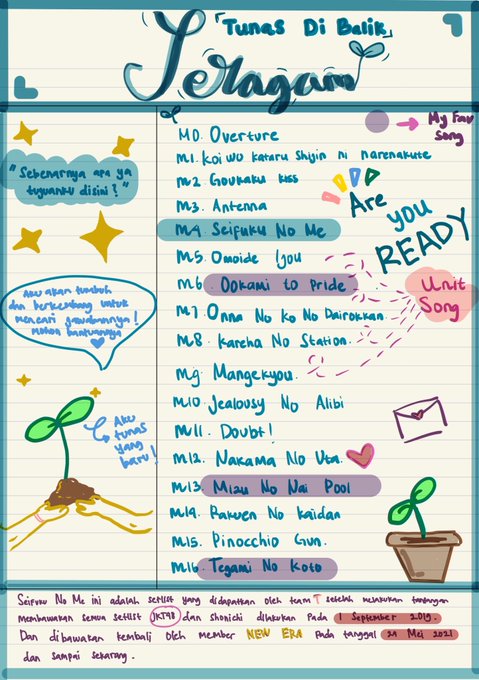 "Tunas Di Balik"
Seragam
My Fav
Song
M0. Overture
M1. Koi wo kataru Shijin ni narenakute
M2. Goukaku kiss
M3. Antenna
M4. Seifuku No Me
M5. Omoide Ijou
M6. Ookami to Pride
M7. Onna No Ko No Dairokkan
M8. Kareha No Station.
M9. Mangekyou.
M10. Jealousy No Alibi
M11. Doubt!
M12. Nakama No Uta.
M13. Mizu No Nai Pool
M14. Rakuen No Kaidan
M15. Pinocchio Gun.
M16. Tegami No Koto
"Sebenarnya apa ya
tujuanku disini?"
Aku akan tumbuh
dan berkembang untuk
mencari jawabannya!
mohon bantuannya
Aku
tunas
yang
baru!
Are
you
READY
Unit
Song
Seifuku No Me ini adalah setlist yang didapatkan oleh team T setelah melakukan tantangan
membawakan semua setlist JKT48 dan shonichi dilakukan Pada 1 September 2019.
Dan dibawakan kembali oleh member NEW ERA pada tanggal 29 Mei 2021
dan sampai sekarang.